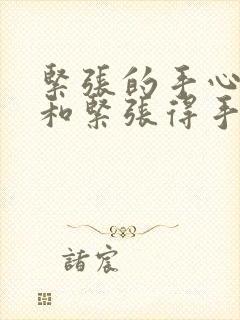 緊張的手心
和緊張得手
諸宸